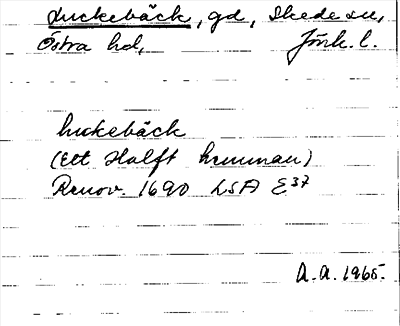 Luckebäck, gd, Skede sn,
Östra hd, Jönk. l.
Luckebäck
(Ett Halft hemman)
Renov. 1690 LSA E 37
A.A. 1965.